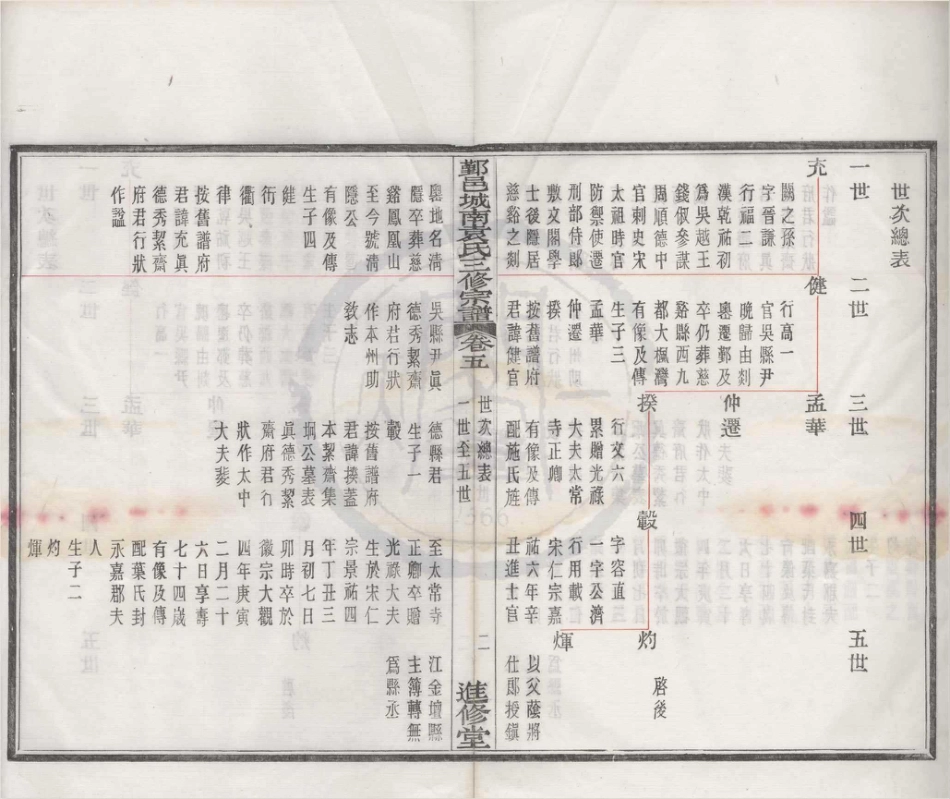 世次總表
一世
二世
三世
四世
五世
充
關之孫
字晉謙
行福二
漢乾祐初
爲吳越王
錢俶參謀
周順德中
官刺史宋
太祖時官
防禦使遷
刑部侍郎
敷文閣學
士後隱居
慈谿之剡
健
行高一
官吳縣尹
晚歸由剡
嶴遷鄞及
卒仍葬慈
谿縣西九
都大楓灣
有像及傳
生子三
孟華
仲遷
揆
按舊譜府
君諱健官
孟華
仲遷
揆
行文六
累贈光祿
大夫太常
寺正卿
有像及傳
配施氏旌
轂
字容直
一字公濟
行用載
宋仁宗嘉
祐六年辛
丑進士官
灼
啓後
煇
以父蔭將
仕郎授鎮
鄞邑城南袁氏三修宗譜
卷五
世次總表
一世至五世
二
進修堂
嶴地名清
隱卒葬慈
谿鳳凰山
至今號清
隱公
有像及傳
生子四
健
衎
衢
律
按舊譜府
君諱充眞
德秀絜齋
府君行狀
作諡
吳縣尹眞
德秀絜齋
府君行狀
作本州助
敎志
德縣君
生子一
轂
按舊譜府
君諱揆蓋
本絜齋集
珦公墓表
眞德秀絜
齋府君行
狀作太中
大夫裴
至太常寺
正卿卒贈
光祿大夫
生於宋仁
宗景祐四
年丁丑三
月初七日
卯時卒於
徽宗大觀
四年庚寅
二月二十
六日享壽
七十四歲
有像及傳
配葉氏封
永嘉郡夫
人
生子二
灼
煇
江金壇縣
主簿轉無
爲縣丞